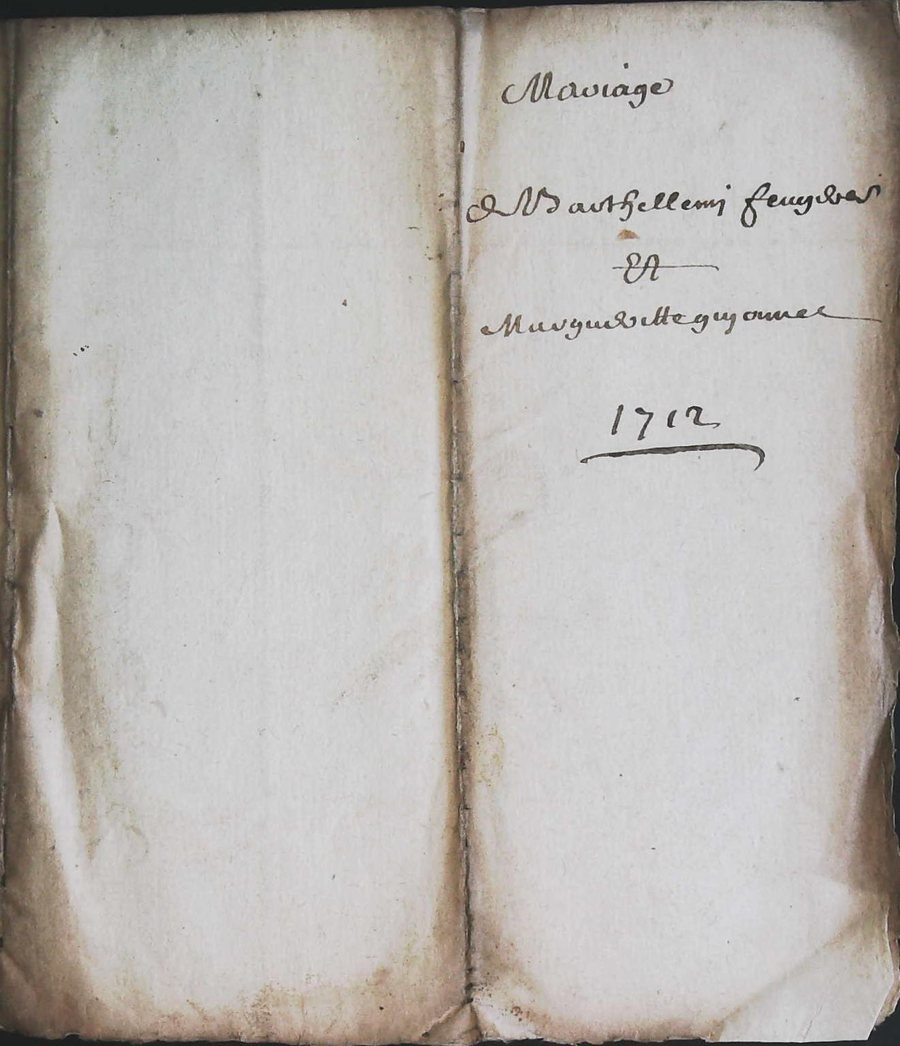 Mariage
de Barthellemi feugere
Et
Margueritte guionnet
1712